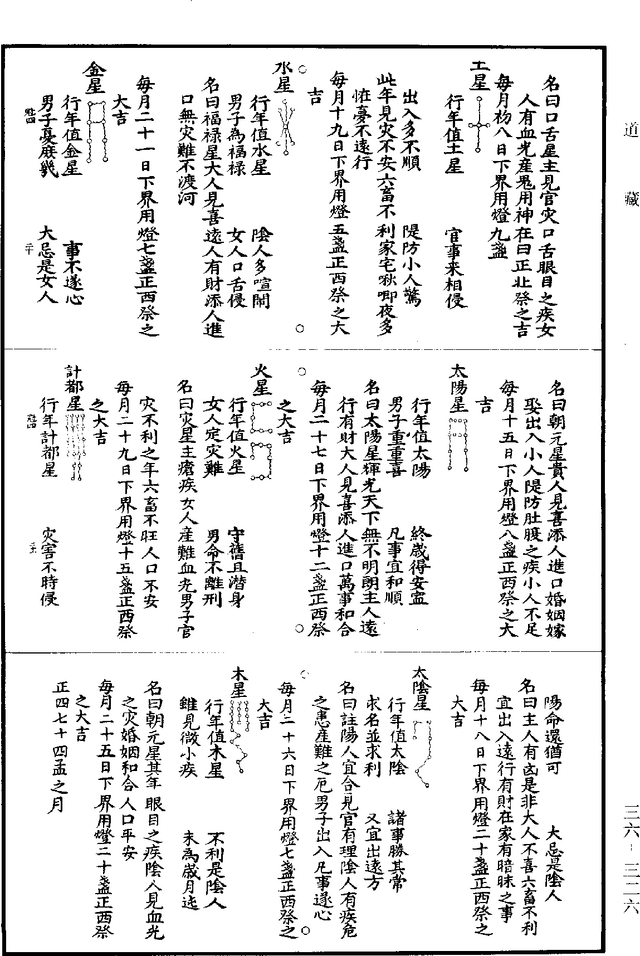 道藏
名曰口舌星主見官灾口舌眼目之疾女
人有血光產鬼用神在日正北祭之吉
每月初八日下界用燈九盞
土星
行年值土星　官事來相侵
出入多不順　隄防小人驚
此年見灾不安六畜不利家宅啾唧夜多
怪夢不遠行
每月十九日下界用燈五盞正西祭之大
吉
水星
行年值水星　陰人多喧鬧
男子為福祿　女人口舌侵
名曰福祿星大人見喜遠人有財添人進
口無灾難不渡河
每月二十一日下界用燈七盞正西祭之
大吉
金星
行年值金星　事不遂心
男子憂庶幾　大忌是女人
名曰朝元星貴人見喜添人進口婚姻嫁
娶出入小人隄防肚腹之疾小人不足
每月十五日下界用燈八盞正西祭之大
吉
太陽星
行年值太陽　終歲得安寍
男子重重喜　凡事宜和順
名曰太陽星輝光天下無不明朗主人遠
行有財大人見喜添人進口萬事和合
每月二十七日下界用燈十二盞正西祭
之大吉
火星
行年值火星　守舊且潛身
女人定灾難　男命不離刑
名曰灾星主瘡疾女人產難血光男子官
灾不利之年六畜不旺人口不安
每月二十九日下界用燈十五盞正西祭
之大吉
計都星
行年計都星　灾害不時侵
陽命還猶可　大忌是陰人
名曰主人有凶是非大人不喜六畜不利
宜出入遠行有財在家有暗昧之事
每月十八日下界用燈二十盞正西祭之
大吉
太陰星
行年值太陰　諸事勝其常
求名並求利　又宜出遠方
名曰註陽人宜合見官有理陰人有疾危
之患產難之厄男子出入凡事遂心
每月二十六日下界用燈七盞正西祭之
大吉
木星
行年值木星　不利是陰人
雖見微小疾　未為歲月迍
名曰朝元星其年眼目之疾陰人見血光
之灾婚姻和合人口平安
每月二十五日下界用燈二十盞正西祭
之大吉
正四七十四孟之月
三六—三二六